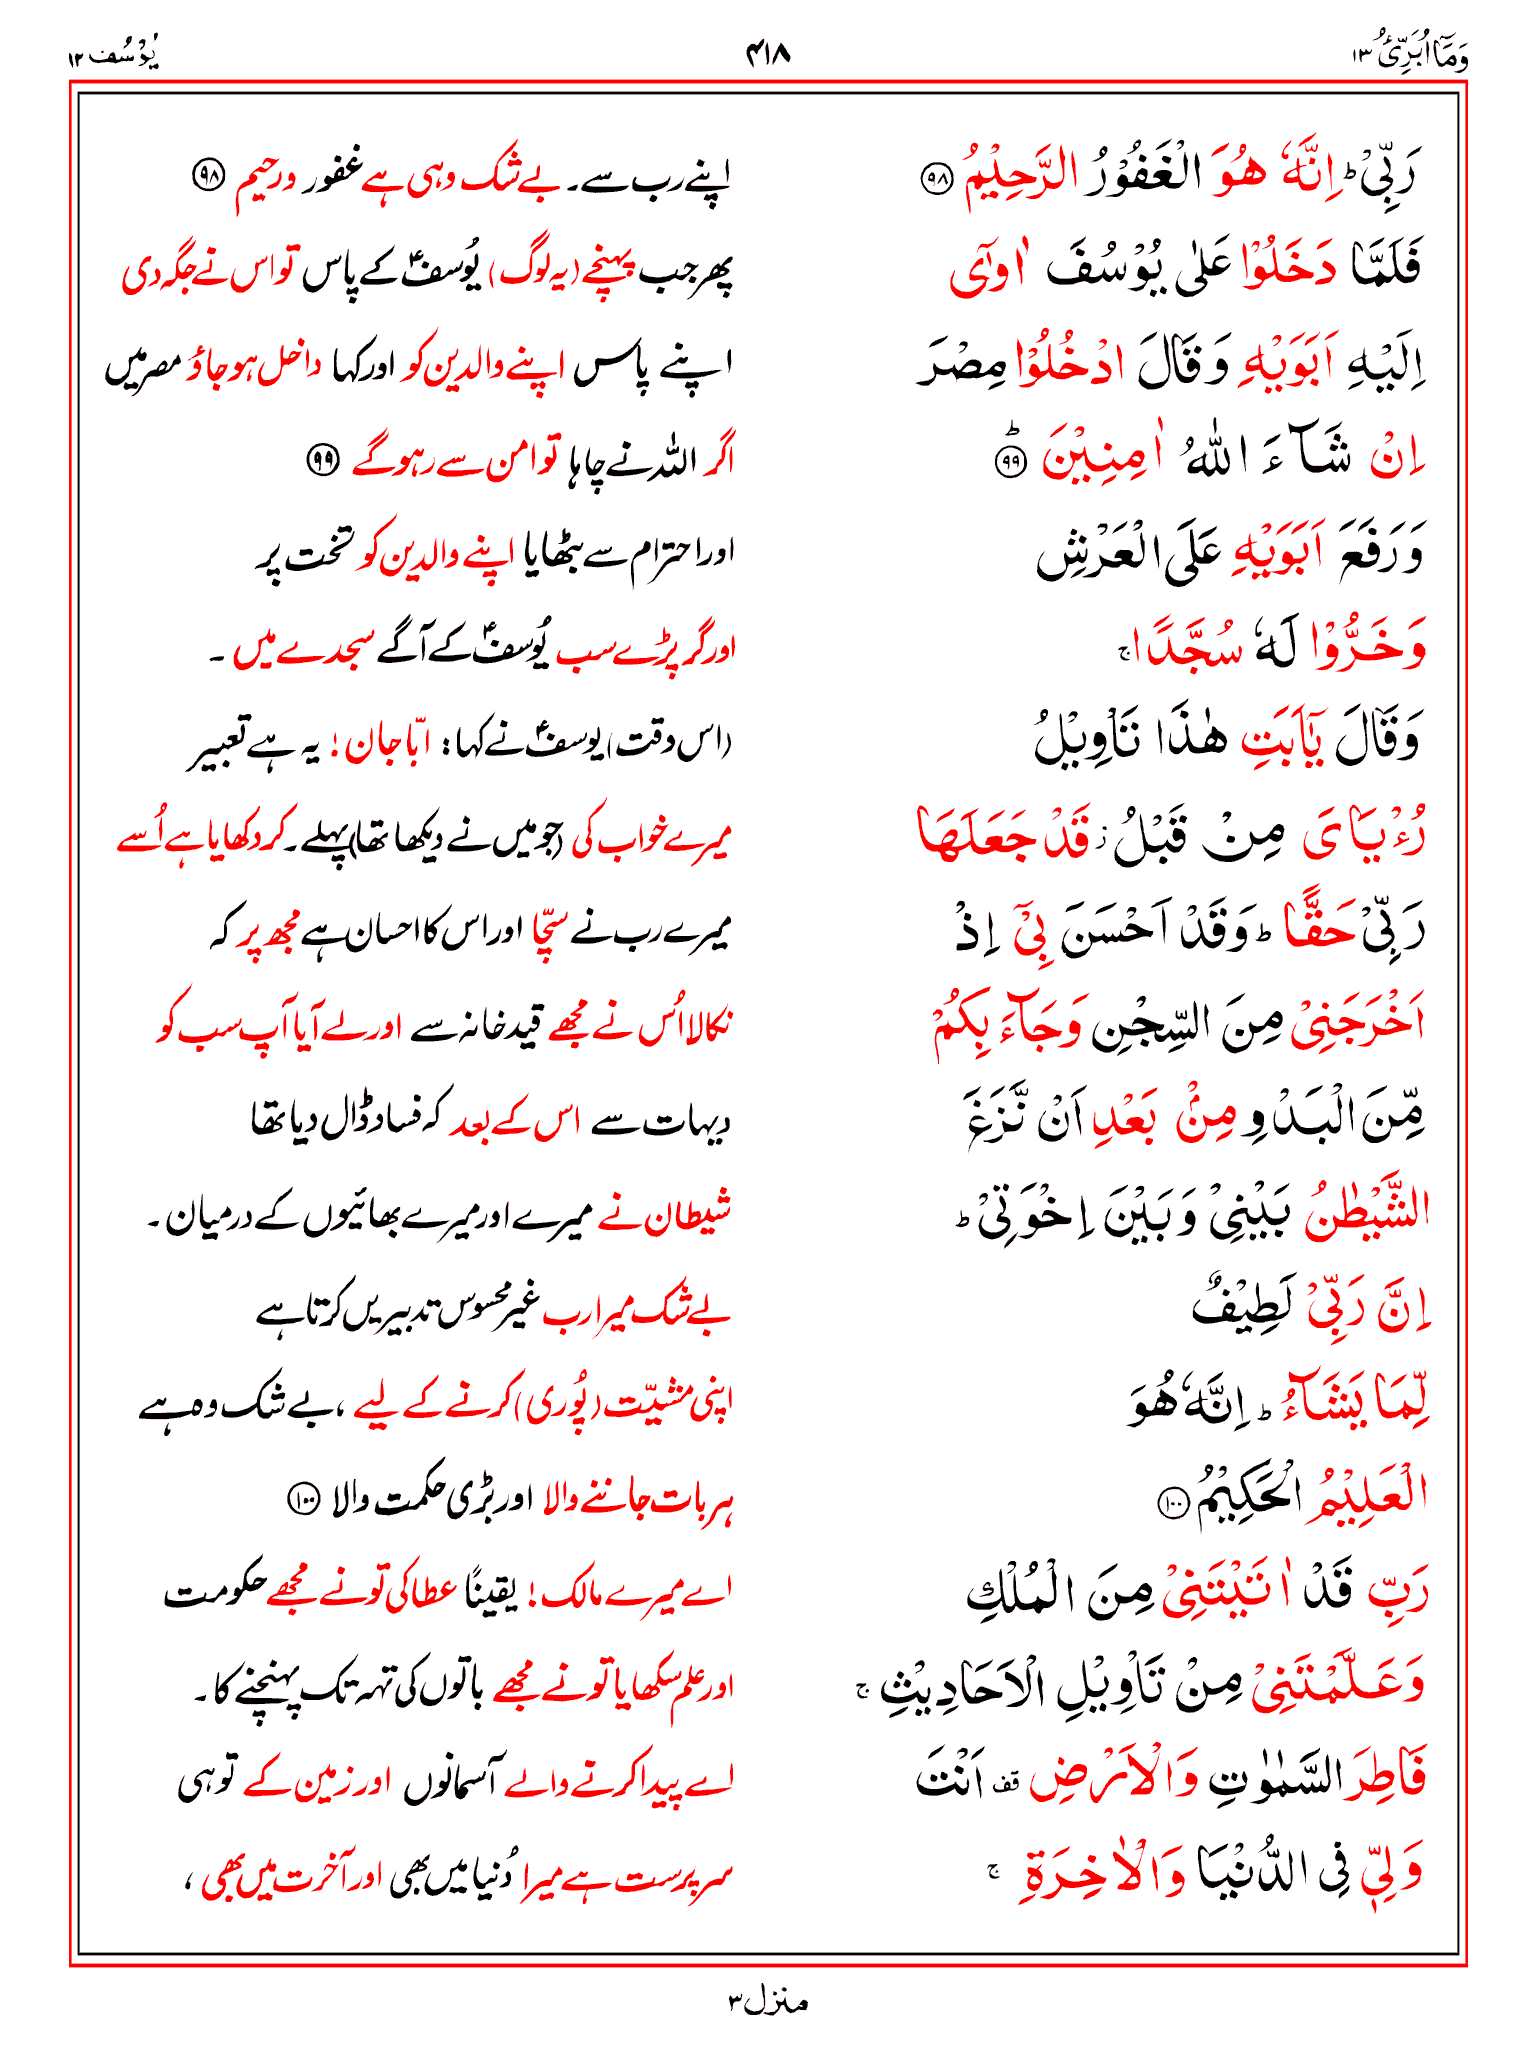 وَمَآ اُبَرِّئُ ۱۳ ۴۱۸ یُوْسُف ۱۲
رَبِّیْ ؕ اِنَّهٗ هُوَ الْغَفُوْرُ الرَّحِیْمُ ۹۸ اپنے رب سے۔ بے شک وہی ہے غفور ورحیم ۹۸
فَلَمَّا دَخَلُوْا عَلٰی یُوْسُفَ اٰوٰۤی پھر جب پہنچے (یہ لوگ) یُوسفؑ کے پاس تو اس نے جگہ دی
اِلَیْهِ اَبَوَیْهِ وَ قَالَ ادْخُلُوْا مِصْرَ اپنے پاس اپنے والدین کو اور کہا داخل ہو جاؤ مصر میں
اِنْ شَآءَ اللّٰهُ اٰمِنِیْنَ ؕ ۹۹ اگر اللہ نے چاہا تو امن سے رہو گے ۹۹
وَ رَفَعَ اَبَوَیْهِ عَلَی الْعَرْشِ اور احترام سے بٹھایا اپنے والدین کو تخت پر
وَ خَرُّوْا لَهٗ سُجَّدًا ۚ اور گر پڑے سب یُوسفؑ کے آگے سجدے میں ۔
وَ قَالَ یٰۤاَبَتِ هٰذَا تَاْوِیْلُ (اس وقت) یوسفؑ نے کہا: ابّا جان! یہ ہے تعبیر
رُءْیَایَ مِنْ قَبْلُ ؗ قَدْ جَعَلَهَا میرے خواب کی (جو میں نے دیکھا تھا) پہلے۔ کر دکھایا ہے اُسے
رَبِّیْ حَقًّا ؕ وَ قَدْ اَحْسَنَ بِیْۤ اِذْ میرے رب نے سچّا اور اس کا احسان ہے مجھ پر کہ
اَخْرَجَنِیْ مِنَ السِّجْنِ وَ جَآءَ بِكُمْ نکالا اُس نے مجھے قید خانہ سے اور لے آیا آپ سب کو
مِّنَ الْبَدْوِ مِنْۢ بَعْدِ اَنْ نَّزَغَ دیہات سے اس کے بعد کہ فساد ڈال دیا تھا
الشَّیْطٰنُ بَیْنِیْ وَ بَیْنَ اِخْوَتِیْ ؕ شیطان نے میرے اور میرے بھائیوں کے درمیان ۔
اِنَّ رَبِّیْ لَطِیْفٌ بے شک میرا رب غیر محسوس تدبیریں کرتا ہے
لِّمَا یَشَآءُ ؕ اِنَّهٗ هُوَ اپنی مشیّت (پُوری) کرنے کے لیے ، بے شک وہ ہے
الْعَلِیْمُ الْحَكِیْمُ ۱۰۰ ہر بات جاننے والا اور بڑی حکمت والا ۱۰۰
رَبِّ قَدْ اٰتَیْتَنِیْ مِنَ الْمُلْكِ اے میرے مالک! یقیناً عطا کی تو نے مجھے حکومت
وَ عَلَّمْتَنِیْ مِنْ تَاْوِیْلِ الْاَحَادِیْثِ ۚ اور علم سکھایا تو نے مجھے باتوں کی تہہ تک پہنچنے کا ۔
فَاطِرَ السَّمٰوٰتِ وَ الْاَرْضِ قف اَنْتَ اے پیدا کرنے والے آسمانوں اور زمین کے تو ہی
وَلِیّٖ فِی الدُّنْیَا وَ الْاٰخِرَةِ ۚ سرپرست ہے میرا دُنیا میں بھی اور آخرت میں بھی ،
منزل ۳